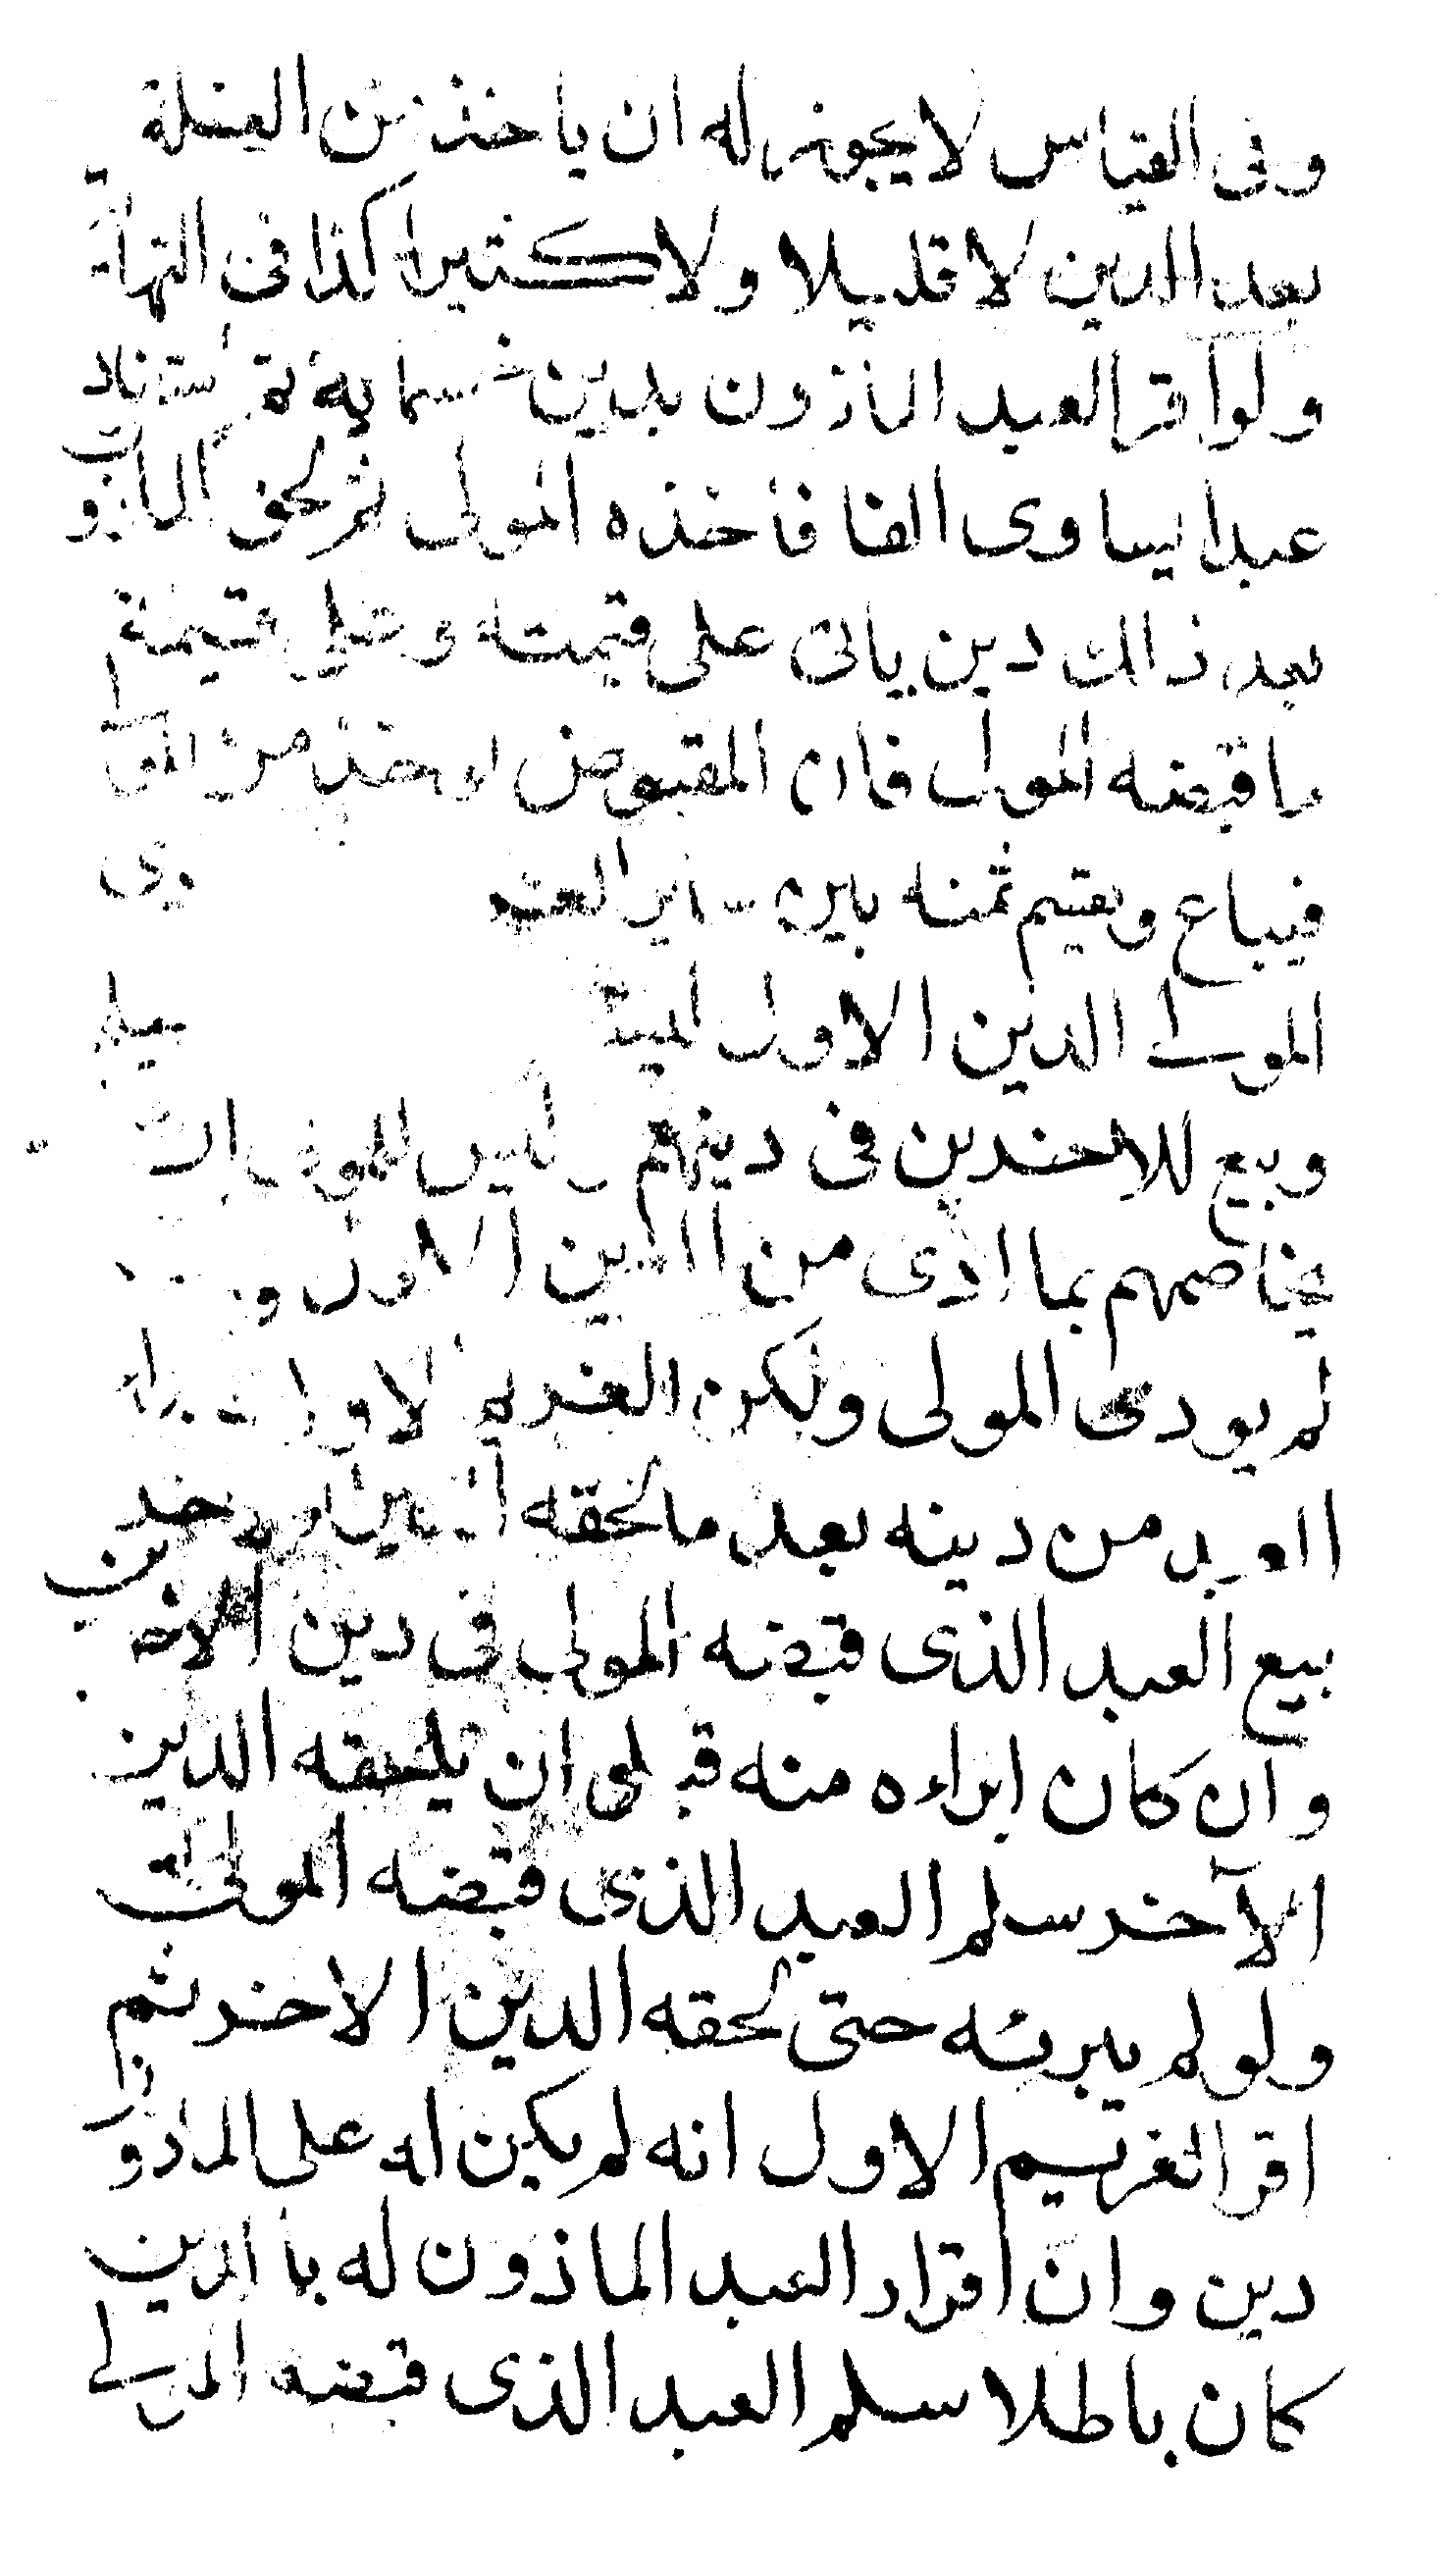 وفى القياس لا يجوز له ان ياخذ من الغلة
بعد الدين لا قليلا ولا كثيرا كذا فى النهاية
ولو اقر العبد الماذون بدين خمسماية ثم استفاد
عبدا يساوى الفا فاخذه المولى ثم لحق الماذون
بعد ذلك دين ياتى على قيمته وعلى قيمة
ما قبضه المولى فان المقبوض يوخذ من المولى
فيباع ويقسم ثمنه بين
المولى الدين الاول
وبيع للاخرين فى دينهم وليس للمولى ان
يخاصمهم بما ادى من الدين الاول
لم يودى المولى ولكن الغريم الاول
العبد من دينه بعد ما لحقه
بيع العبد الذى قبضه المولى فى دين الاخرين
وان كان ابراءه منه قبل ان يلحقه الدين
الآخر سلم العبد الذى قبضه المولى
ولو لم يبرئه حتى لحقه الدين الاخر ثم
اقر الغريم الاول انه لم يكن له على الماذون
دين وان اقرار العبد الماذون له بالدين
كان باطلا سلم العبد الذى قبضه المولى